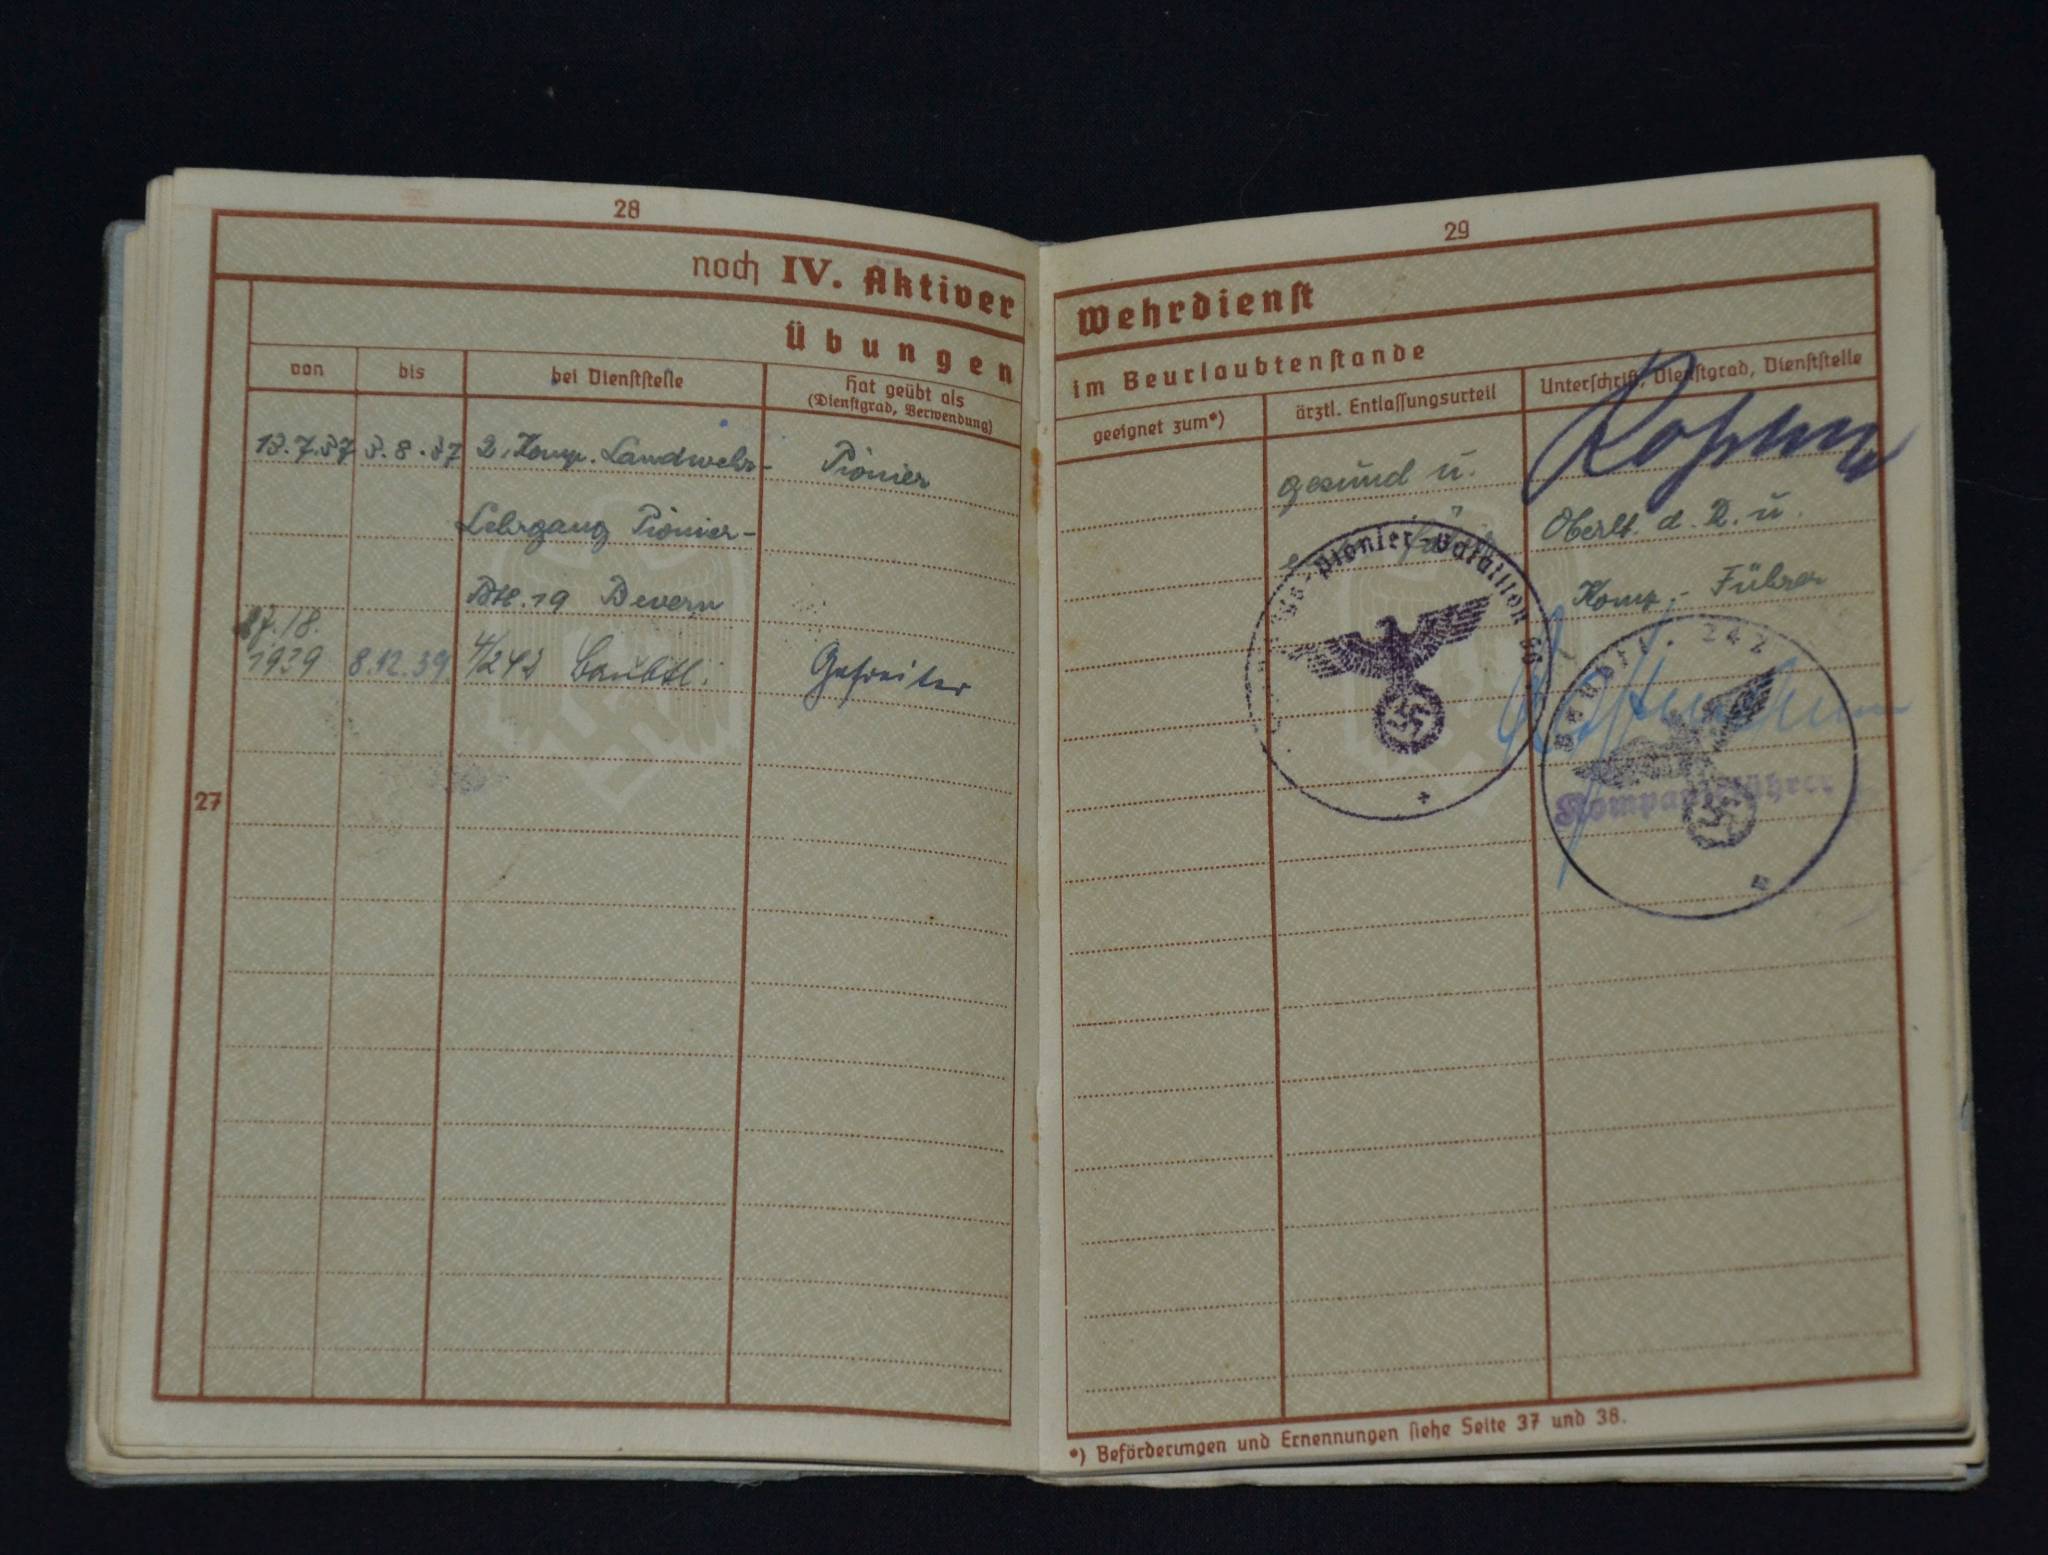 28
noch IV. Aktiver
Übungen
von
bis
bei Dienststelle
Hat geübt als
(Dienstgrad, Verwendung)
13.7.37 3.8.37 2. Komp. Landwehr- Pionier
Lehrgang Pionier-
Btl. 19 Bevern
1939 8.12.39. 4/242 Baubtl. Gefreiter
27
29
Wehrdienst
im Beurlaubtenstande
geeignet zum*)
ärztl. Entlassungsurteil
Unterschrift, Dienstgrad, Dienststelle
gesund u.
Oberlt. d. R. u.
Komp.- Führer
Pionier-Bataillon
242
Kompanieführer
*) Beförderungen und Ernennungen siehe Seite 37 und 38.